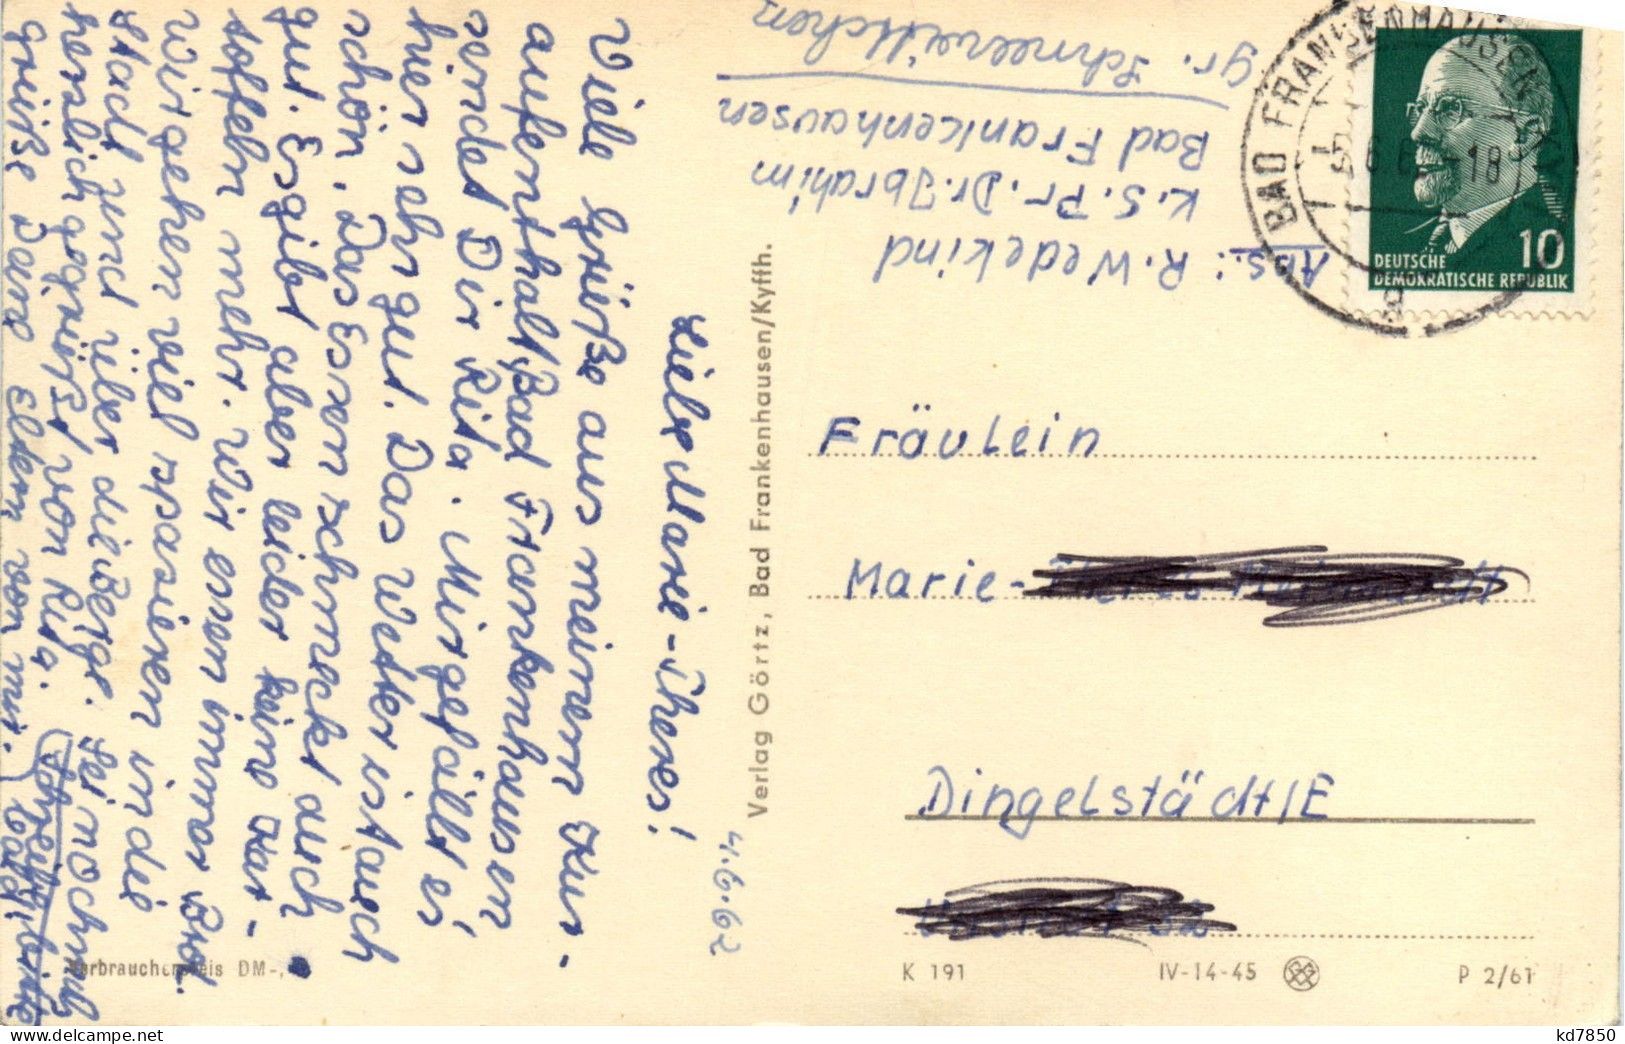 4.6.62
Liebe Marie-Theres!
Viele Grüße aus meinem Kur-
aufenthalt, Bad Frankenhausen
sendet Dir Rita. Mir gefällt es
hier sehr gut. Das Wetter ist auch
schön. Das Essen schmeckt auch
gut. Es gibt aber leider keine Kar-
toffeln mehr. Wir essen immer Brot.
Wir gehen viel spazieren in die
Stadt und über die Berge. Sei nochmals
herzlich gegrüßt von Rita. Schreibe bald, bitte
grüße Deine Eltern von mir.
Verbraucherpreis DM-,
Verlag Görtz, Bad Frankenhausen/Kyffh.
Abs.: R. Wedekind
K.S. Pr. Dr. Ibrahim
Bad Frankenhausen
gr. Schneewittchen
BAD FRANKENHAUSEN
18
10
DEUTSCHE
DEMOKRATISCHE REPUBLIK
Fräulein
Marie-
Dingelstädt/E
K 191 IV-14-45 P 2/61
kd7850